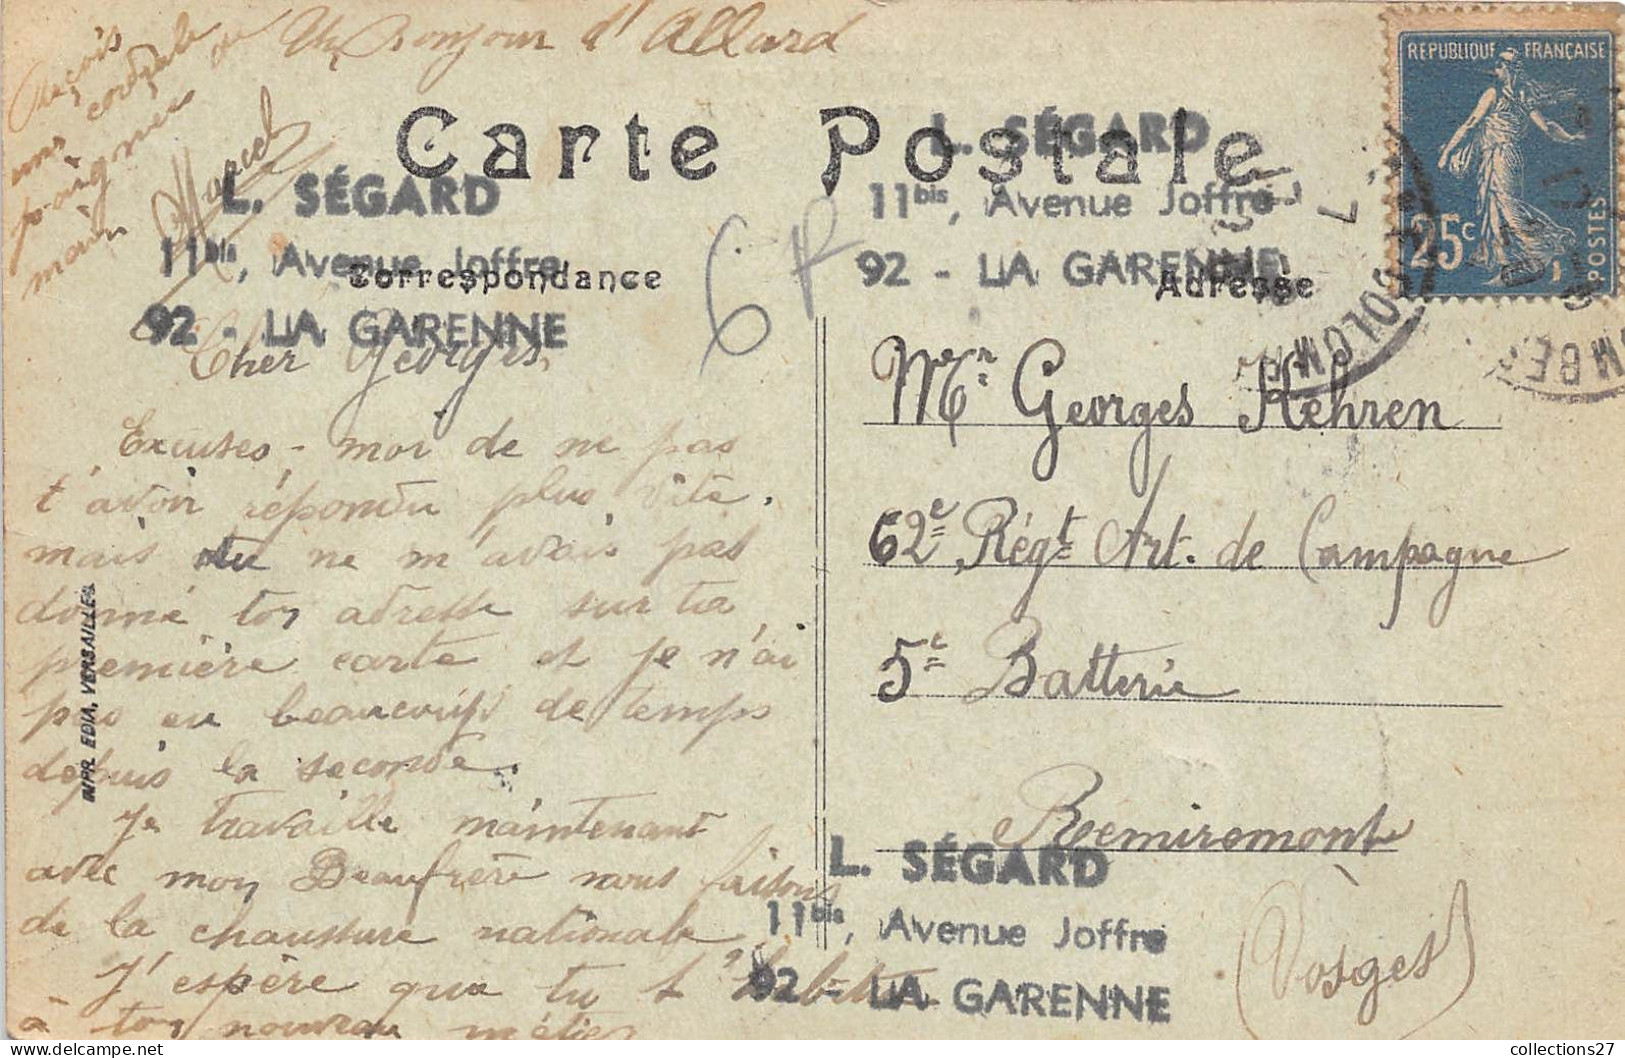 Reçois
une cordiale
poignée
main
Marcel
Un Bonjour d'Allard
Carte Postale
L. SÉGARD
11bis, Avenue Joffre
92 - LA GARENNE
Correspondance
6 F
L. SÉGARD
11bis, Avenue Joffre
92 - LA GARENNE
Adresse
REPUBLIQUE FRANÇAISE
25c
POSTES
COLOMBES
Cher Georges,
Excuses-moi de ne pas
t'avoir répondu plus vite.
mais tu ne m'avais pas
donné ton adresse sur ta
première carte et je n'ai
pas eu beaucoup de temps
depuis la seconde.
Je travaille maintenant
avec mon Beaufrère nous faisons
de la chaussure nationale
J'espère que tu t'habitue
à ton nouveau métier
IMPR. EDIA. VERSAILLES
Mr Georges Hehren
62e Régt Art. de Campagne
5e Batterie
Remiremont
(Vosges)
L. SÉGARD
11bis, Avenue Joffre
92 - LA GARENNE
collections27